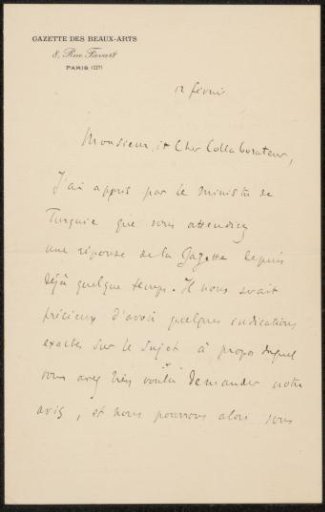 GAZETTE DES BEAUX-ARTS
8, Rue Favart
PARIS (2e)
12 février
Monsieur et Cher Collaborateur,
J'ai appris par le ministre de
Turquie que vous attendiez
une réponse de la Gazette depuis
déjà quelque temps. Il nous serait
précieux d'avoir quelques indications
exactes sur le sujet à propos duquel
vous avez bien voulu demander notre
avis, et nous pourrons alors vous